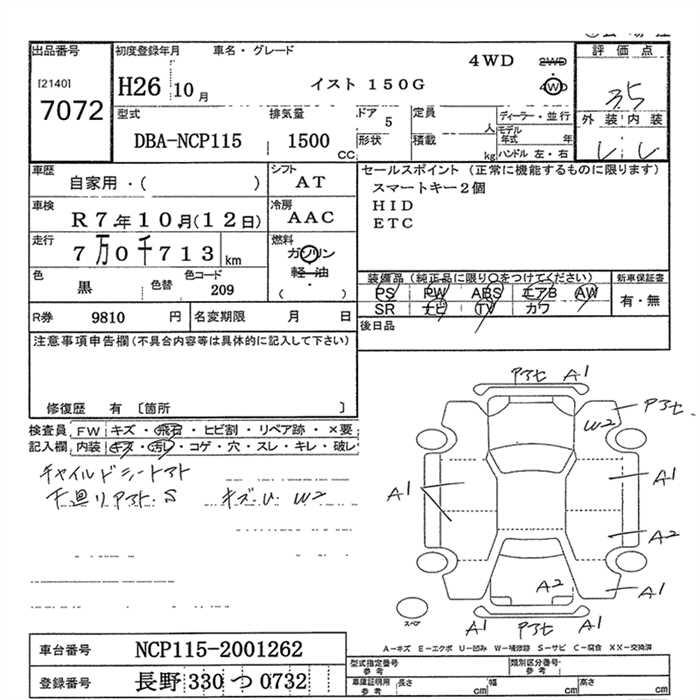 出品番号 初度登録年月 車名・グレード 4WD 2WD 評価点
[2140] 7072 H26 10月 イスト 150G 4WD 3.5
型式 排気量 ドア 5 定員 人 ディーラー・並行 外装 内装
DBA-NCP115 1500 CC 形状 積載 kg モデル年式 年 ハンドル 左・右
車歴 自家用・( ) シフト AT セールスポイント (正常に機能するものに限ります)
スマートキー2個
HID
ETC
車検 R7年10月(12日) 冷房 AAC
走行 7万0千713 km 燃料 ガソリン 軽・油 ・ ( )
色 黒 色替 色コード 209
装備品(純正品に限り○をつけてください) 新車保証書
PS PW ABS エアB AW 有・無
SR ナビ TV カワ
R券 9810 円 名変期限 月 日 後日品
注意事項申告欄(不具合内容等は具体的に記入して下さい)
修復歴 有 〔箇所 〕
検査員 FW キズ・飛石・ヒビ割・リペア跡・×要
記入欄 内装 キズ・汚レ・コゲ・穴・スレ・キレ・破レ
A1
A1
W2
A1
A1
A2
A2
A1
A1
A1
キズ.U. W2
スペア
A-キズ E-エクボ U-凹み W-補修跡 S-サビ C-腐食 XX-交換済
車台番号 NCP115-2001262
登録番号 長野 330 つ 0732
型式指定番号 参考 類別区分番号 参考
車庫証明用 参考 長さ cm 幅 cm 高さ cm